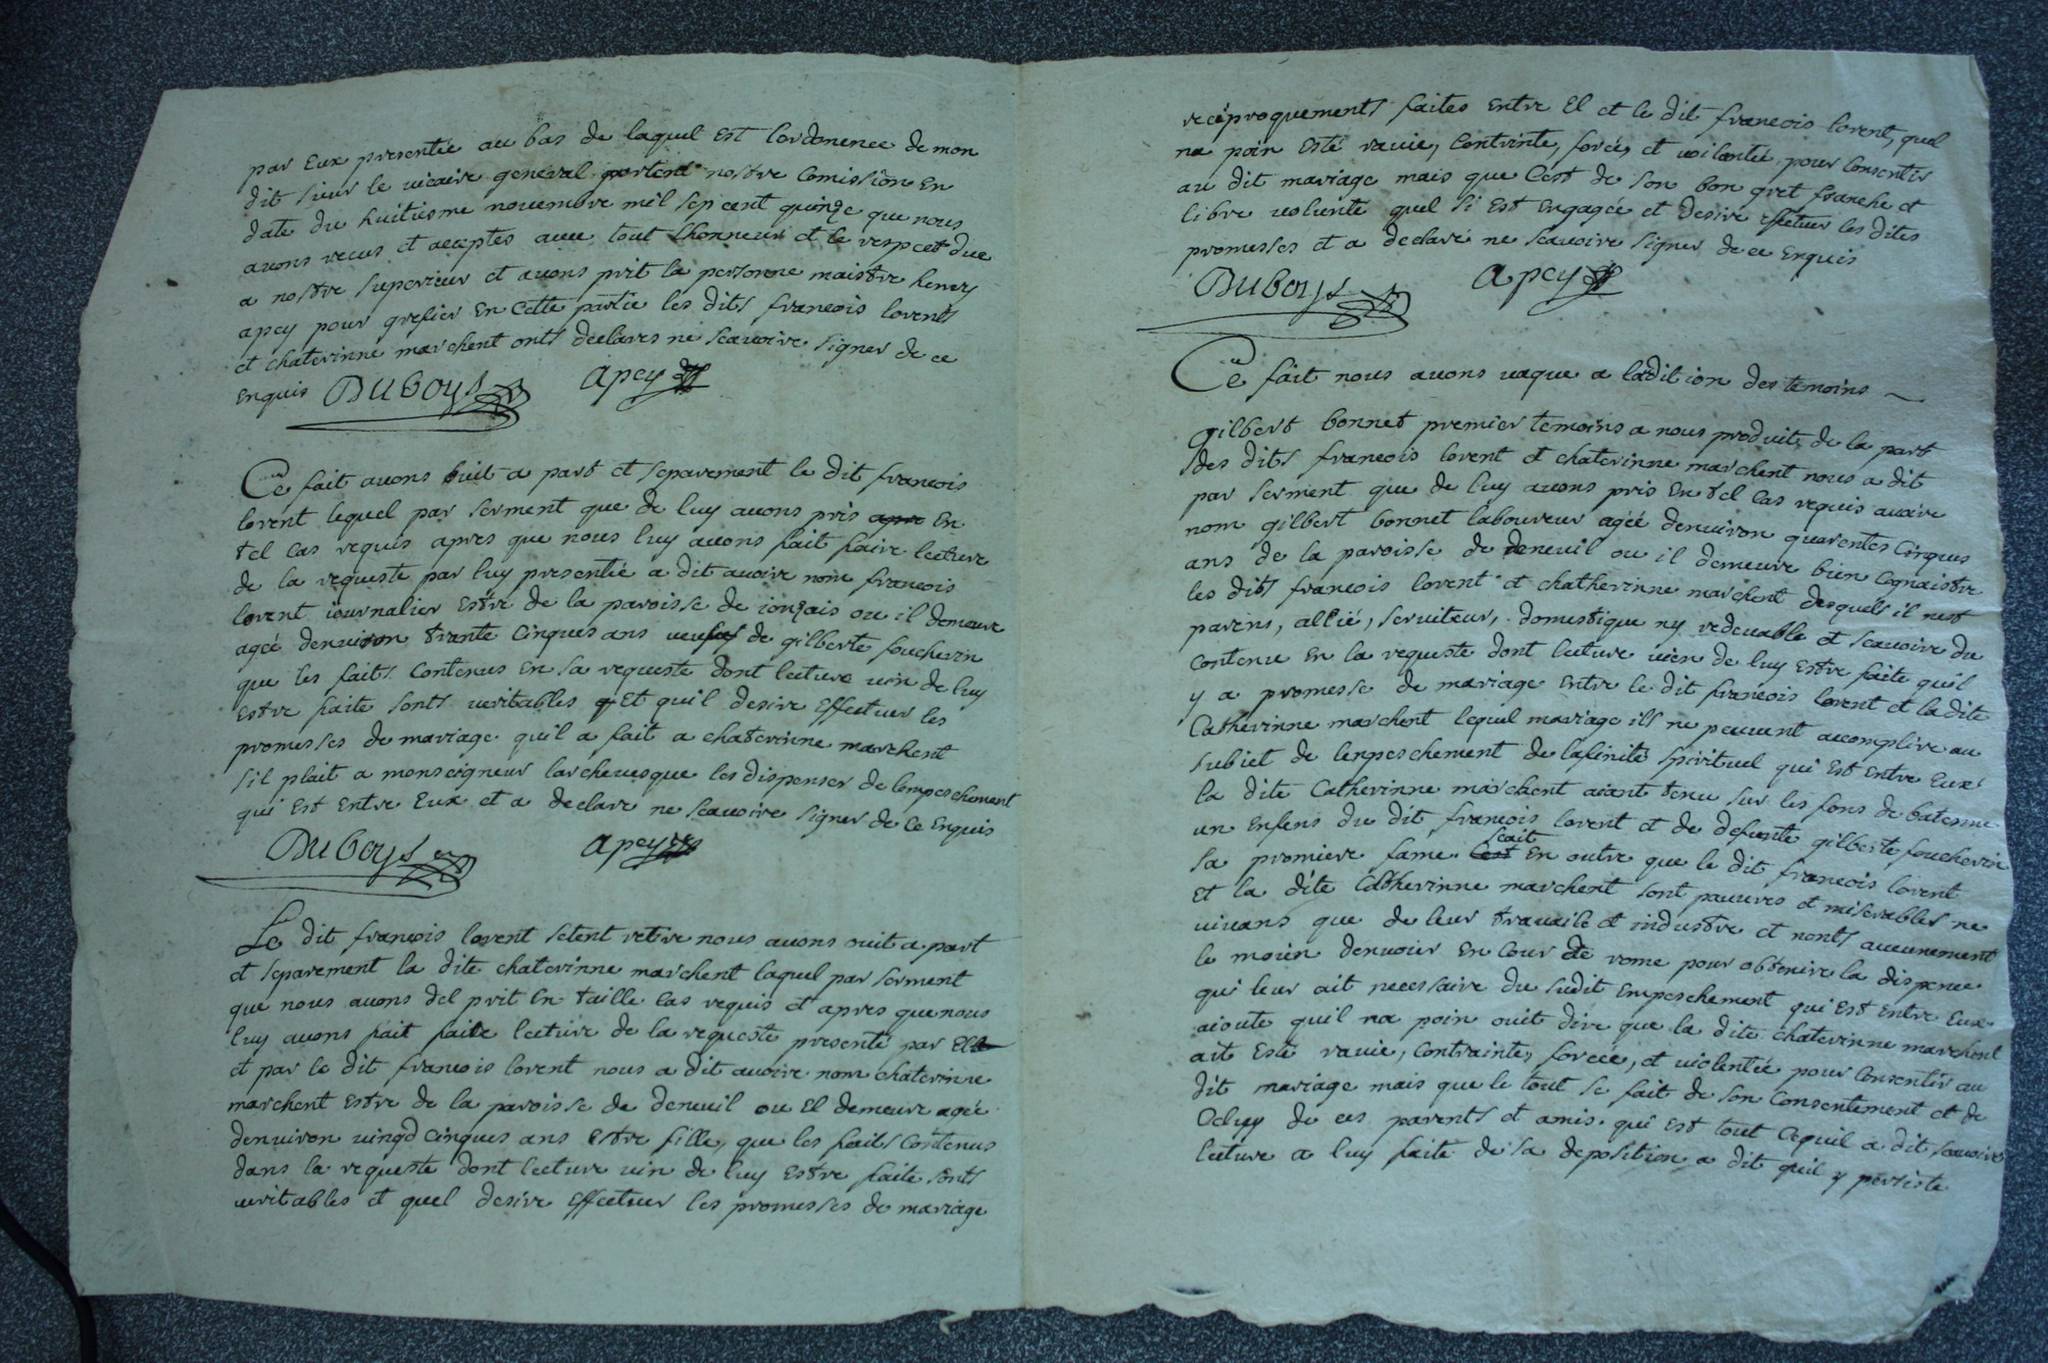 par Eux presentée au bas de laquel est Lordonence de mon
dit sieur le vicaire general portent nostre Comission En
date du huitiesme nouembre mil sep cent quinze que nous
auons recus et aceptes auec tout Lhonneur et le respcet due
a nostre superieur et auons prit la personne maistre henry
apcy pour grefier En Cette partie les dits francois lorents
et chaterinne marchent onts declares ne scauoire signer de ce
Enquis DuBoys apcy
Ce fait auons ouit a part et separement le dit francois
lorent lequel par serment que de luy auons pris En
tel Cas requis apres que nous luy auons fait faire lecture
de la requeste par luy presentée a dit auoire nom francois
lorent iournalier Estre de la paroisse de ionzais ou il demeure
agéé denuiron trante Cinques ans de gilberte foucherin
que les faits Contenus En sa requeste dont lecture uin de luy
Estre faite sonts ueritables Et quil desire Effectuer les
promesses de mariage quil a fait a chaterinne marchent
sil plait a monseigneur larcheuesque les dispenser de lempeschement
qui Est Entre Eux et a declare ne scauoire signer de Ce Enquis
DuBoys apcy
Le dit francois lorent setent retire nous auons ouit a part
et separement la dite chaterinne marchent laquel par serment
que nous auons del prit En taille Cas requis et apres que nous
luy auons fait faite lecture de la requeste presenté par El
et par le dit francois lorent nous a dit auoire nom chaterinne
marchent Estre de la paroisse de deneuil ou El demeure agéé
denuiron uingd Cinques ans Estre fille, que les faits Contenus
dans la requeste dont lecture uin de luy Estre faite sonts
ueritables et quel desire Effectuer les promesses de mariage
reciproquements faites Entre El et le dit francois lorent, quel
na poin Esté rauie, Contrinte, forcéé, et uoilantéé pour Consentir
au dit mariage mais que Cest de son bon gret franche et
libre uolunte quel si Est Engagéé et desire effectuer les dites
promesses et a declaré ne scauoire signer de ce Enquis
DuBoys apcy
Ce fait nous auons uaque a ladition des temoins
gilbert bonnet premier temoins a nous produit de la part
des dits francois lorent et chaterinne marchent nous a dit
par serment que de luy auons pris En tel Cas requis auoire
nom gilbert bonnet laboureur agéé denuiron quarentes Cinques
ans de la paroisse de deneuil ou il demeure bien Cognaistre
les dits francois lorent et chatherinne marchent desquels il nest
parens, allié, seruiteur, domestique ny redeuable et scauoire du
Contenu En la requeste dont lecture uien de luy Estre faite quil
y a promesse de mariage Entre le dit francois lorent et la dite
Catherinne marchent lequel mariage ils ne peuuent acomplire au
subiet de lenpeschement de lafinité spirituel qui Est Entre Eux
la dite Catherinne marchent aiant tenu sur les fons de batesme
un Enfens du dit francois lorent et de defunte gilberte foucherin
sa premiere fame scait En outre que le dit francois lorent
et la dite Catherinne marchent sont pauures et miserables ne
uiuans que de leur trauaile et industre et nonts aucunement
le moien denuoier En Cour de rome pour obtenire la dispence
qui leur ait necessaire du sudit Empeschement qui est entre Eux
aioute quil na poin ouit dire que la dite chaterinne marchent
ait Esté rauie, Contrainte, forcéé, et uiolentée pour Consentir au
dit mariage mais que le tout se fait de son Consentement et de
Celuy de ces parents et amis. qui est tout Cequil a dit scauoire
lecture a luy faite de sa deposition a dit quil y persiste